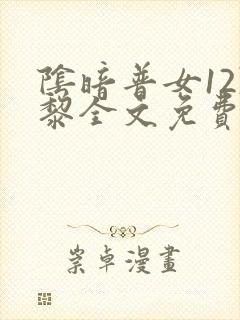 陰暗普女12
黎全文免費
崇卓漫畫